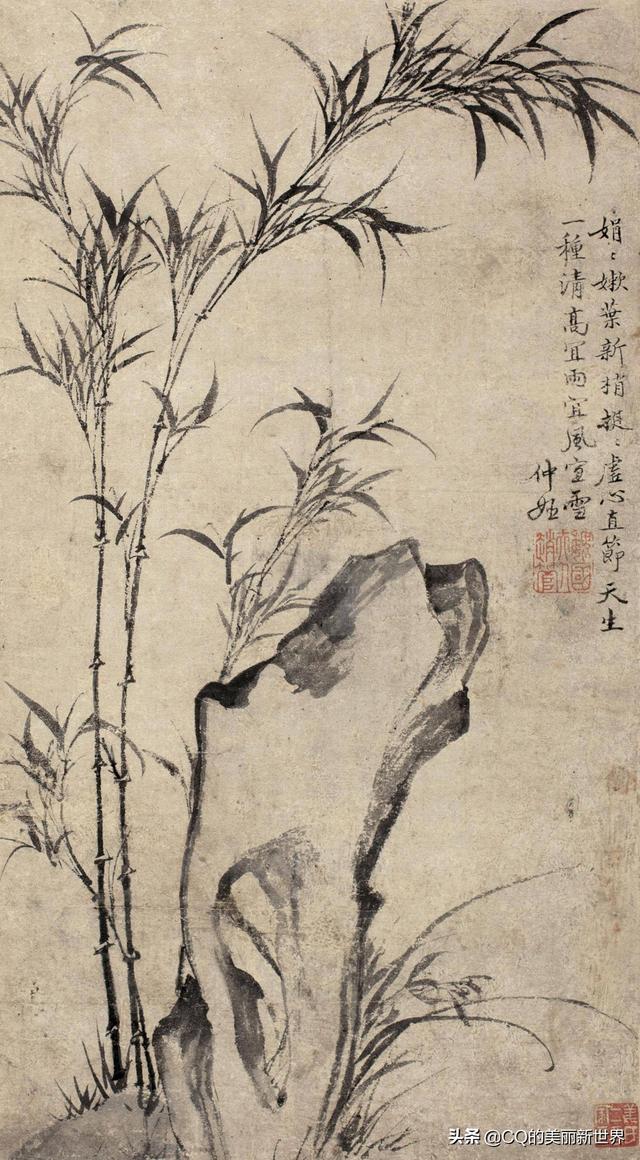 娟〻嫩葉新梢挺〻虛心直節天生
一種清高宜雨宜風宜雪
仲姬
魏國夫人趙管
头条 @CQ的美丽新世界